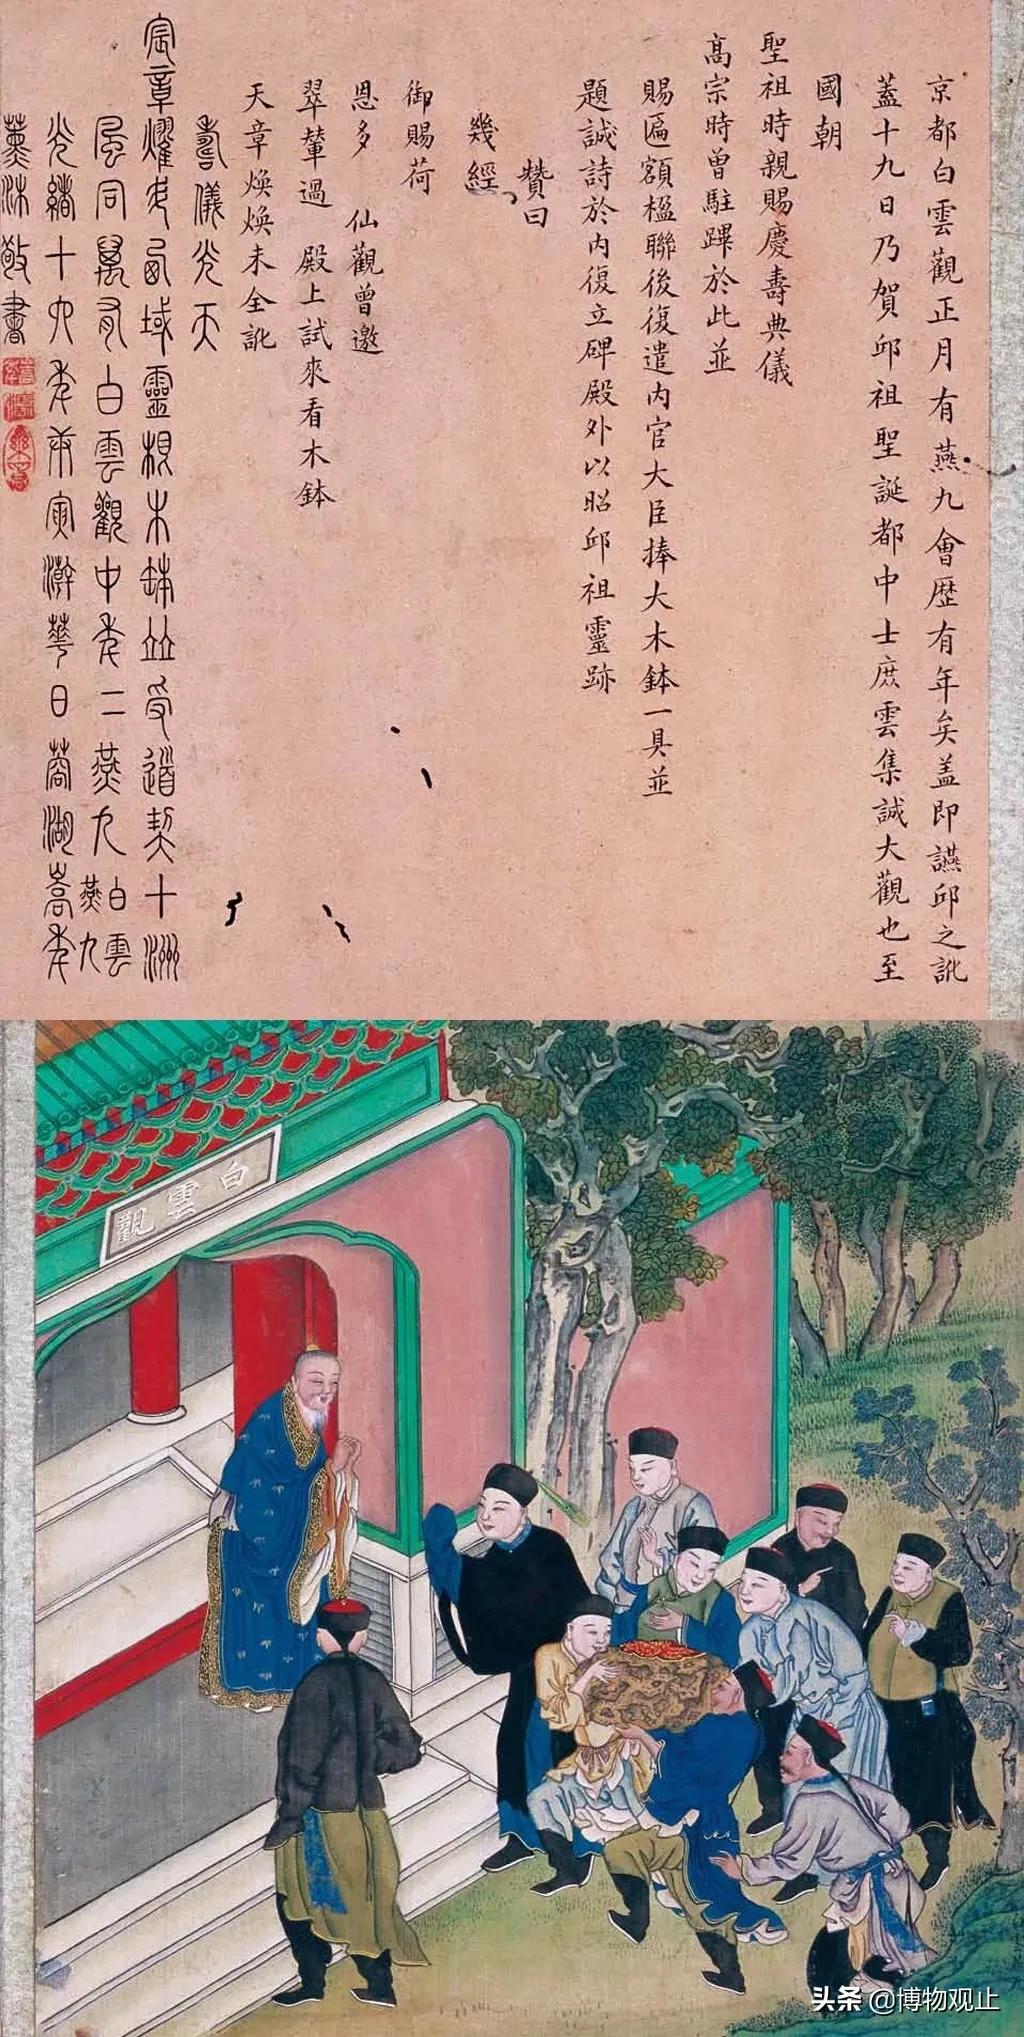 京都白雲觀正月有燕九會歷有年矣蓋即讌邱之訛
蓋十九日乃賀邱祖聖誕都中士庶雲集誠大觀也至
國朝
聖祖時親賜慶壽典儀
高宗時曾駐蹕於此並
賜匾額楹聯後復遣内官大臣捧大木鉢一具並
題誠詩於内復立碑殿外以昭邱祖靈跡
贊曰
幾經
御賜荷
恩多 仙觀曾邀
翠輦過 殿上試來看木鉢
天章煥煥未全訛
壽儀光天
宸章燿域靈根木鉢竝受道契十洲
風同萬白雲觀中年二燕九白雲燕九
光緒十六年庚寅華日蓉湖嵩年
薰沐敬書
白雲觀
头条 @博物观止